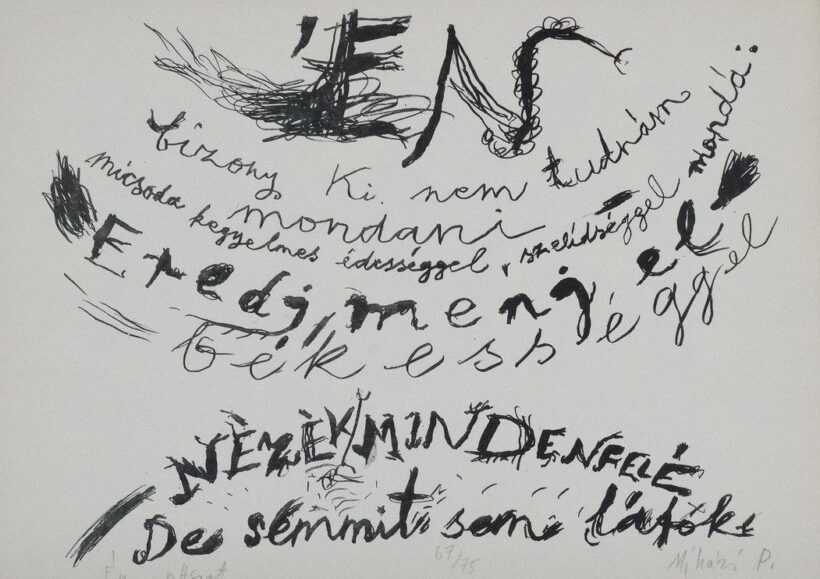 ÉN
bizony Ki nem tudnám
mondani
micsoda kegyelmes édességgel, szelídséggel mondá:
Eredj, menj el
békességgel
NÉZÉK MINDENFELÉ
De semmit sem látók
67/75
P.